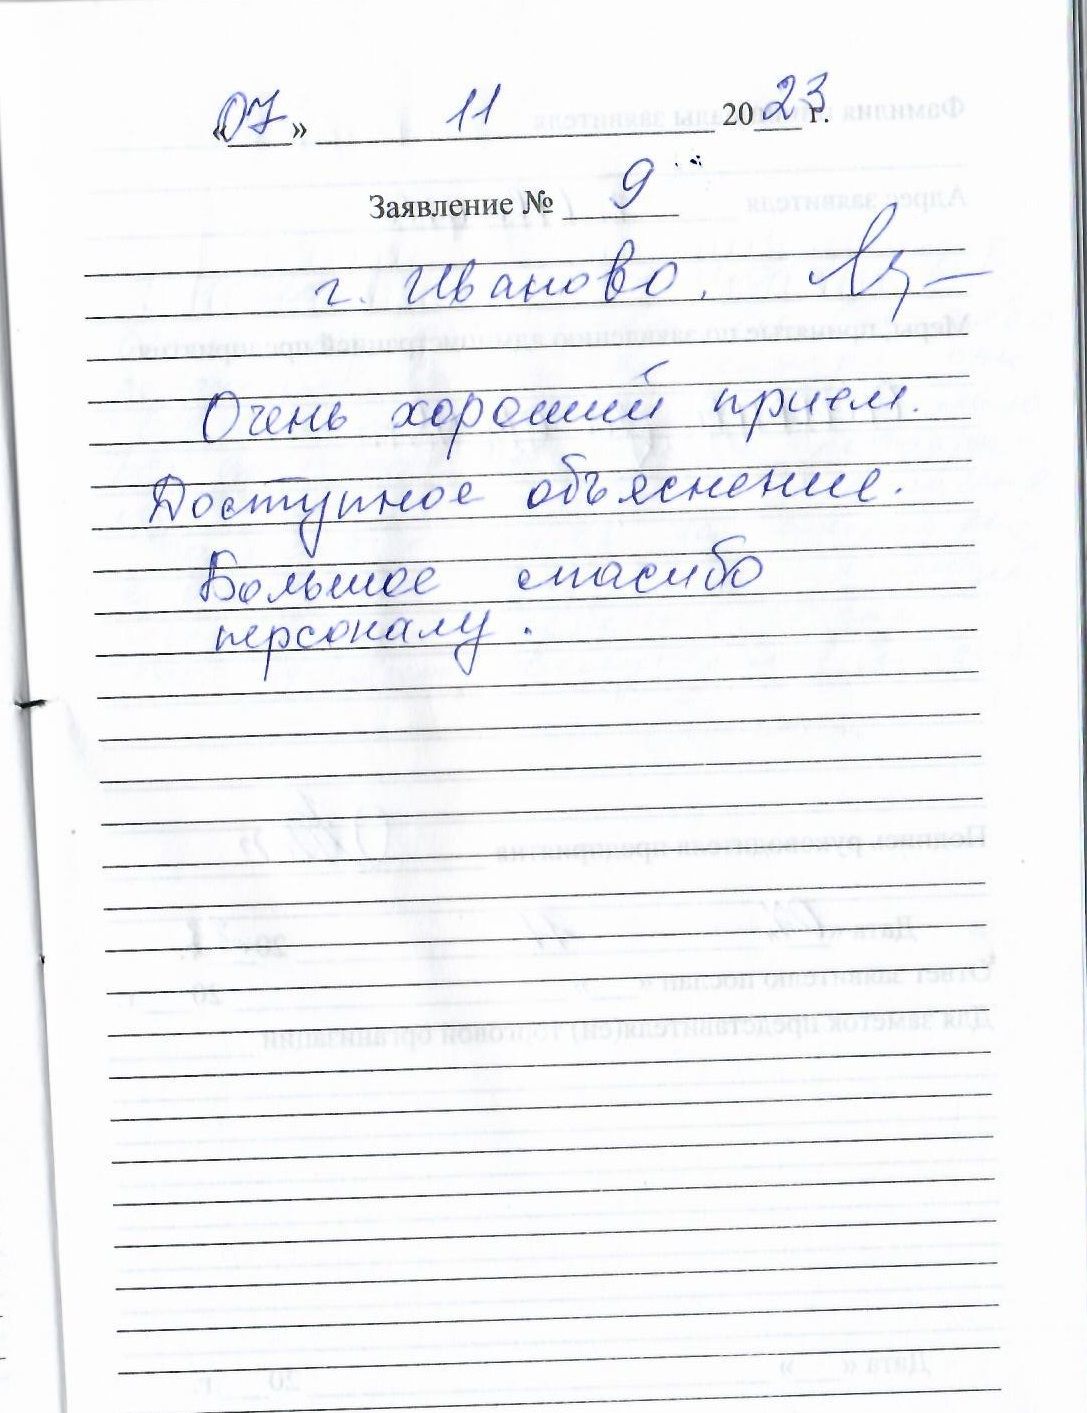 «07» 11 2023 г.
Заявление № 9
г. Иваново.
Очень хороший прием.
Доступное объяснение.
Большое спасибо
персоналу.